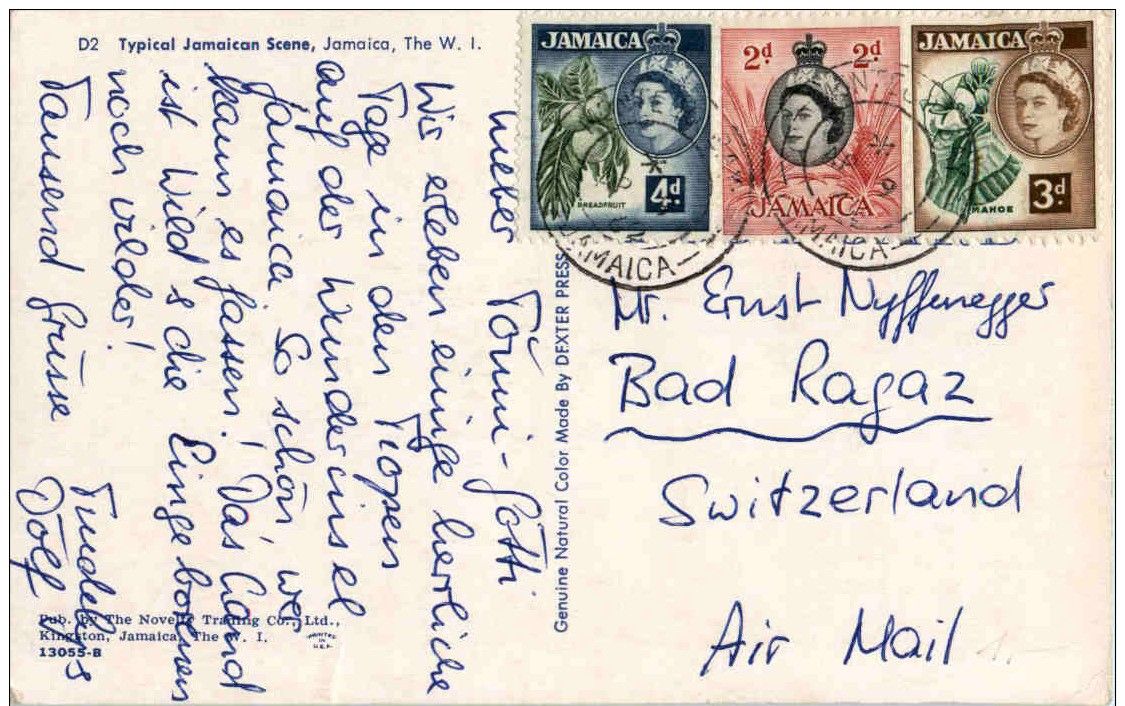 D2 Typical Jamaican Scene, Jamaica, The W. I.
Lieber Töni-Götti
Wir erleben einige herrliche
Tage in den Tropen
auf der Wunderinsel
Jamaica. So schön, wer
kann es fassen! Das Land
ist Wild & die Eingebornen
noch wilder!
Tausend Grüsse
Dölf
Pub. by The Novelty Trading Co., Ltd.,
Kingston, Jamaica, The W. I.
13055-B
PRINTED
IN
U.S.A.
Genuine Natural Color Made By DEXTER PRESS
JAMAICA
BREADFRUIT
4d
2d 2d
JAMAICA
JAMAICA
MAHOE
3d
JAMAICA
JAMAICA
Mr. Ernst Nyffenegger
Bad Ragaz
Switzerland
Air Mail